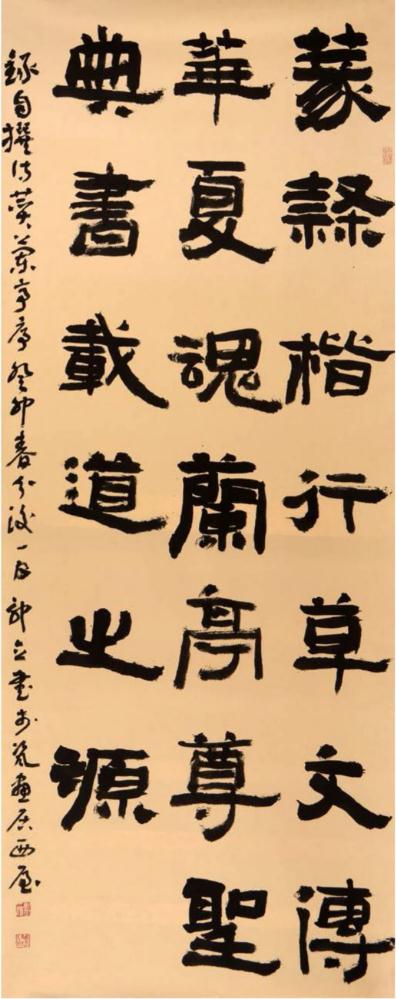 篆隸楷行草文傳
華夏魂蘭亭尊聖
典書載道之源
錄自撰詩贊蘭亭序癸卯春分後一日立書於畫居西屋